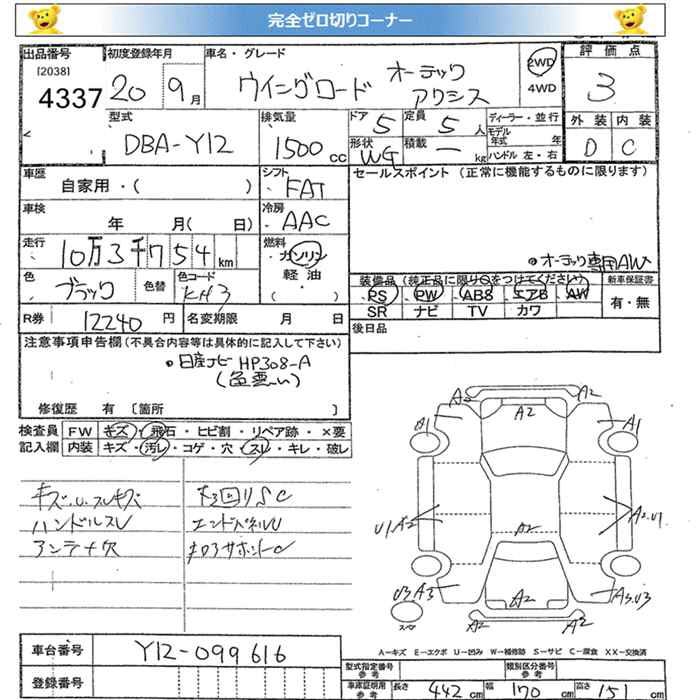 完全ゼロ切りコーナー
出品番号 初度登録年月 車名・グレード 評価点
[2038]
4337 20 9月 ウイングロード オーテック アクシス 2WD 4WD 3
型式 排気量 ドア 定員 ディーラー・並行 外装 内装
DBA-Y12 1500cc 5 5人 モデル年式 年 D C
形状 積載 ハンドル 左・右
WG ー kg
車歴 シフト セールスポイント (正常に機能するものに限ります)
自家用・( ) FAT
車検 冷房
年 月( 日) AAC
走行 燃料
10万3千754km ガソリン ・オーテック専用AW
軽油
色 色替 色コード ・( ) 装備品(純正品に限り○をつけてください) 新車保証書
ブラック KH3 PS PW ABS エアB AW 有・無
SR ナビ TV カワ
R券 12240円 名変期限 月 日 後日品
注意事項申告欄(不具合内容等は具体的に記入して下さい)
・日産ナビー HP308-A
(色悪い)
修復歴 有〔箇所 〕
検査員 FW キズ・飛石・ヒビ割・リペア跡・×要
記入欄 内装 キズ・汚レ・コゲ・穴・スレ・キレ・破レ
キズ.U.スレキズ
ハンドルスレ
アンテナ欠
下廻りSC
エンドパネルU
コアサポートC
A2 A2
A2
A1 A1
U1 A2 A2.U1
A2
U3 A3 A3.U3
A2
A2 A2
スペア
A-キズ E-エクボ U-凹み W-補修跡 S-サビ C-腐食 XX-交換済
車台番号 Y12-099616
登録番号
型式指定番号 参考 類別区分番号 参考
車庫証明用 参考 長さ 442cm 幅 170cm 高さ 15 cm